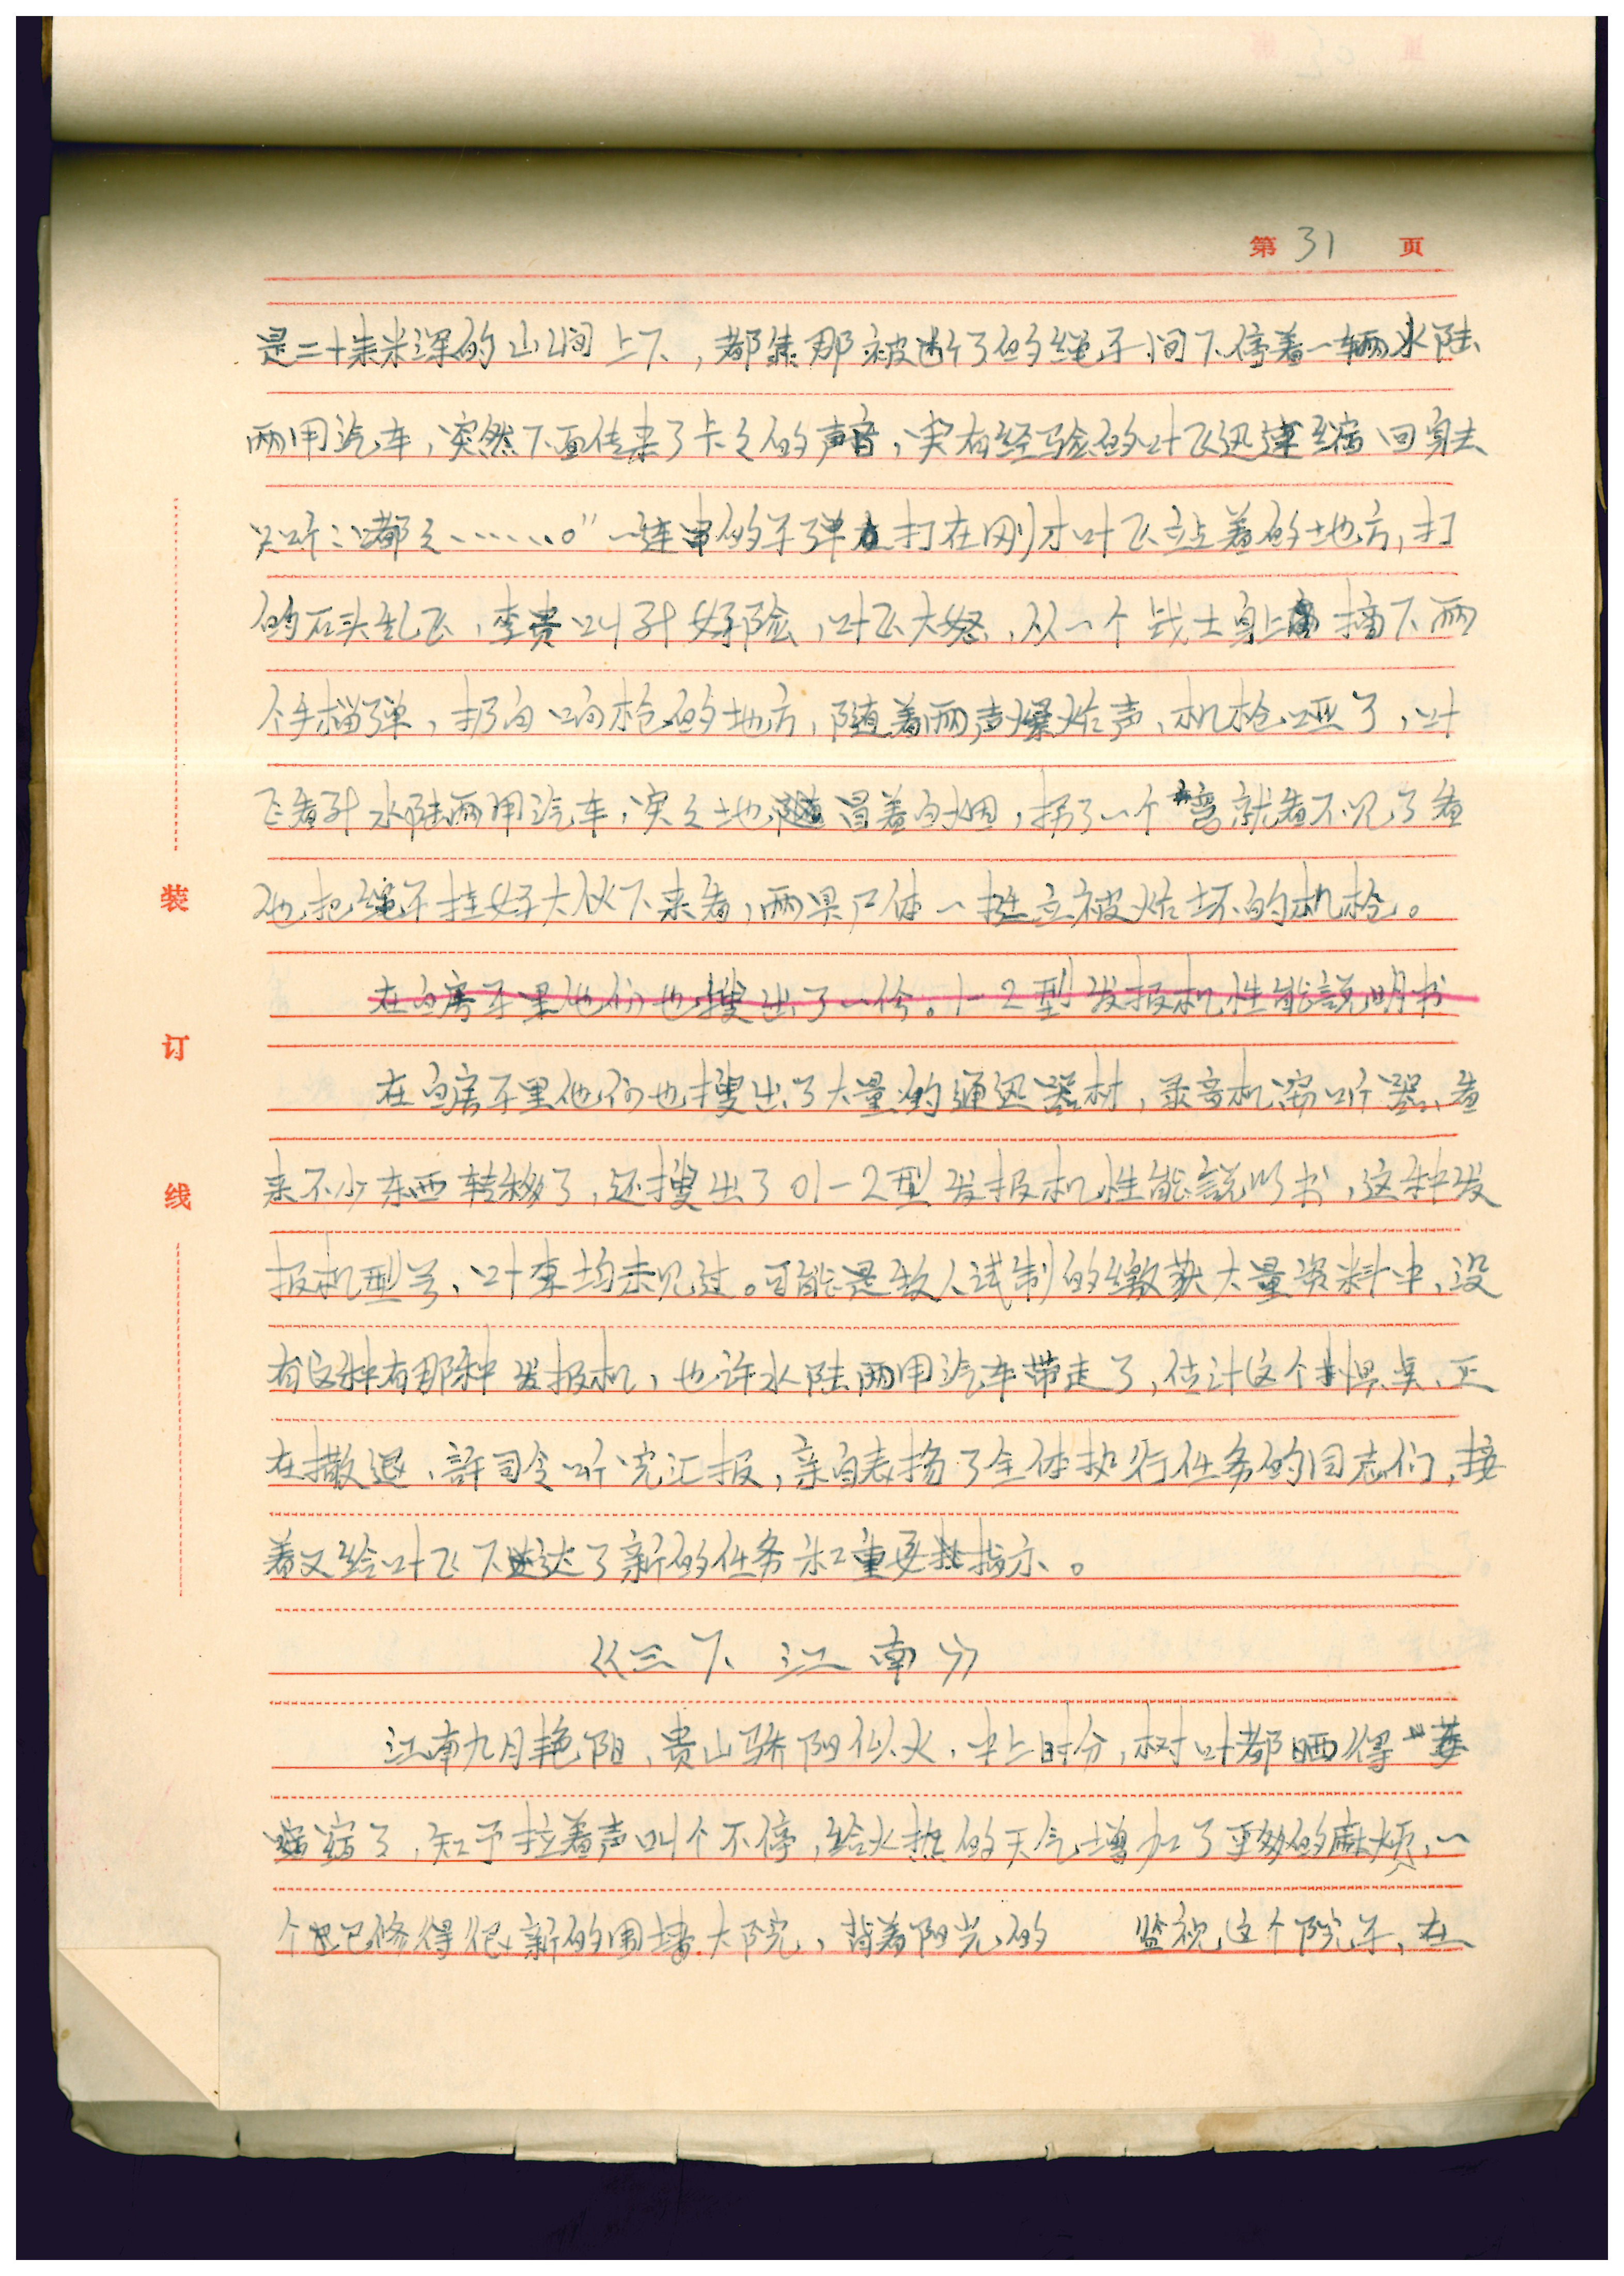 第 31 页
是二十来米深的山涧上下，都 那被断了的绳子间下停着一辆水陆
两用汽车，突然下面传来了卡之的声音，实有经验的叶飞迅速缩回身去
只听“都之………。”一连串的子弹打在刚才叶飞站着的地方，打
的石头乱飞，李贵叫到好险，叶飞大怒，从一个战士身上摘下两
个手榴弹，扔向响枪的地方，随着两声爆炸声，机枪哑了，叶
飞看到水陆两用汽车，突之地冒着白烟，拐了一个弯就看不见了看
他把绳子挂好大伙下来看，两具尸体一挺立被炸坏的机枪。
在白房子里他们也搜出了一份。1－2型发报机性能説明书
在白房子里他们也搜出了大量的通迅器材，录音机窃听器、看
来不少东西转移了，还搜出了01－2型发报机性能説明书，这种发
报机型号、叶李均未见过。可能是敌人试制的缴获大量资料中，没
有这种有那种发报机，也许水陆两用汽车带走了，估计这个据点、正
在撤退、許司令听完汇报，亲自表扬了全体执行任务的同志们，接
着又给叶飞下达了新的任务和重要指示。
《三下江南》
江南九月艳阳、贵山骄阳似火，中上时分，树叶都晒得萎
缩了，知了拉着声叫个不停，给火热的天气增加了更多的麻烦，一
个已修得很新的围墙大院，背着阳光的 监视这个院子，在
装
订
线